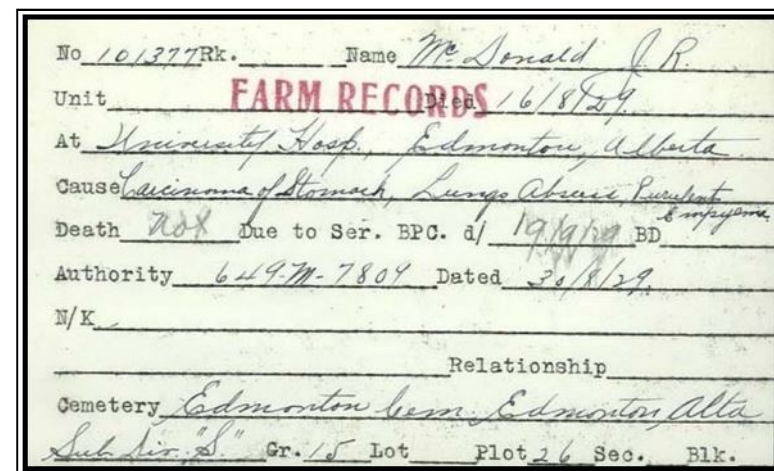 No 101377 Rk. Name McDonald J. R.
Unit FARM RECORDS Died 16/8/29.
At University Hosp., Edmonton, Alberta
Cause Carcinoma of Stomach, Lungs Abscess, Purulent Empyema
Death Not Due to Ser. BPC. d/ 19/9/29 BD
Authority 649-M-7809 Dated 30/8/29.
N/K
Relationship
Cemetery Edmonton Cem. Edmonton, Alta
Sub. Div. "S." Gr. 15 Lot Plot 26 Sec. Blk.